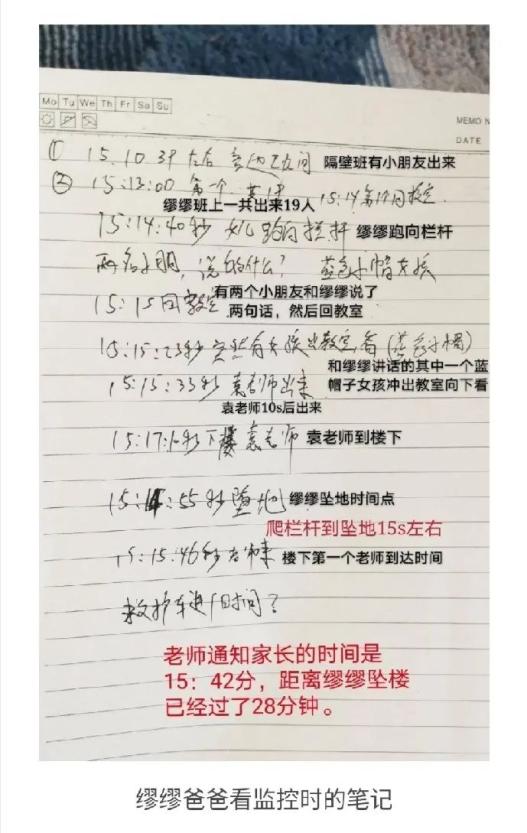 Mo Tu We Th Fr Sa Su
MEMO N
DATE
① 15:10 39 左右 隔壁班有小朋友出来
② 15:13:00 第一个 15:14 第19回教室
缪缪班上一共出来19人
15:14:40秒 女儿跑向栏杆 缪缪跑向栏杆
两名小朋, 说的什么? 蓝色小帽女孩
有两个小朋友和缪缪说了
15:15回教室 两句话,然后回教室
15:15:23秒 突然有女孩出教室看(蓝色小帽)
和缪缪讲话的其中一个蓝
15:15:33秒 袁老师出来 帽子女孩冲出教室向下看
袁老师10s后出来
15:17:10秒下楼袁老师 袁老师到楼下
15:14:55秒坠地 缪缪坠地时间点
爬栏杆到坠地15s左右
15:15:46秒 楼下第一个老师到达时间
救护车进门时间?
老师通知家长的时间是
15:42分,距离缪缪坠楼
已经过了28分钟。
缪缪爸爸看监控时的笔记